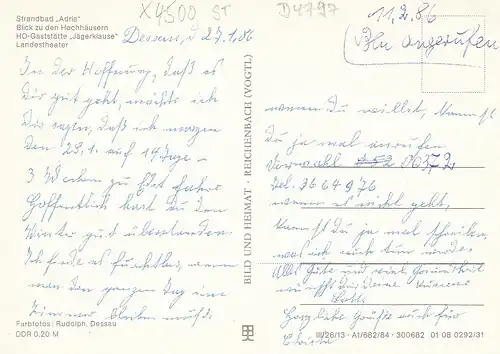 Strandbad „Adria"
Blick zu den Hochhäusern
HO-Gaststätte „Jägerklause"
Landestheater
X4500 ST
D4797
11.2.86
Bln angerufen
Dessau, d 27.1.86
In der Hoffnung, daß es
Dir gut geht, möchte ich
Dir sagen, daß ich morgen
den 28.1. auf 14 Tage –
3 Wochen zu fahre
Hoffentlich hast Du den
Winter gut überstanden.
Ich finde es furchtbar, wenn
man den ganzen Tag im
Zimmer bleiben muß.
Farbfotos: Rudolph, Dessau
DDR 0,20 M
BILD UND HEIMAT · REICHENBACH (VOGTL)
wenn Du willst, kannst
Du ja mal anrufen
Vorwahl 06372
Tel. 3664976
wenn es nicht geht,
kannst Du ja mal schreiben,
was ich auch tun werde.
Alles Gute und viel Gesundheit
wünscht Dir Deine
Lotte
Herzliche Grüße auch für
III/26/13 · A1/682/84 · 300682 01 08 0292/31